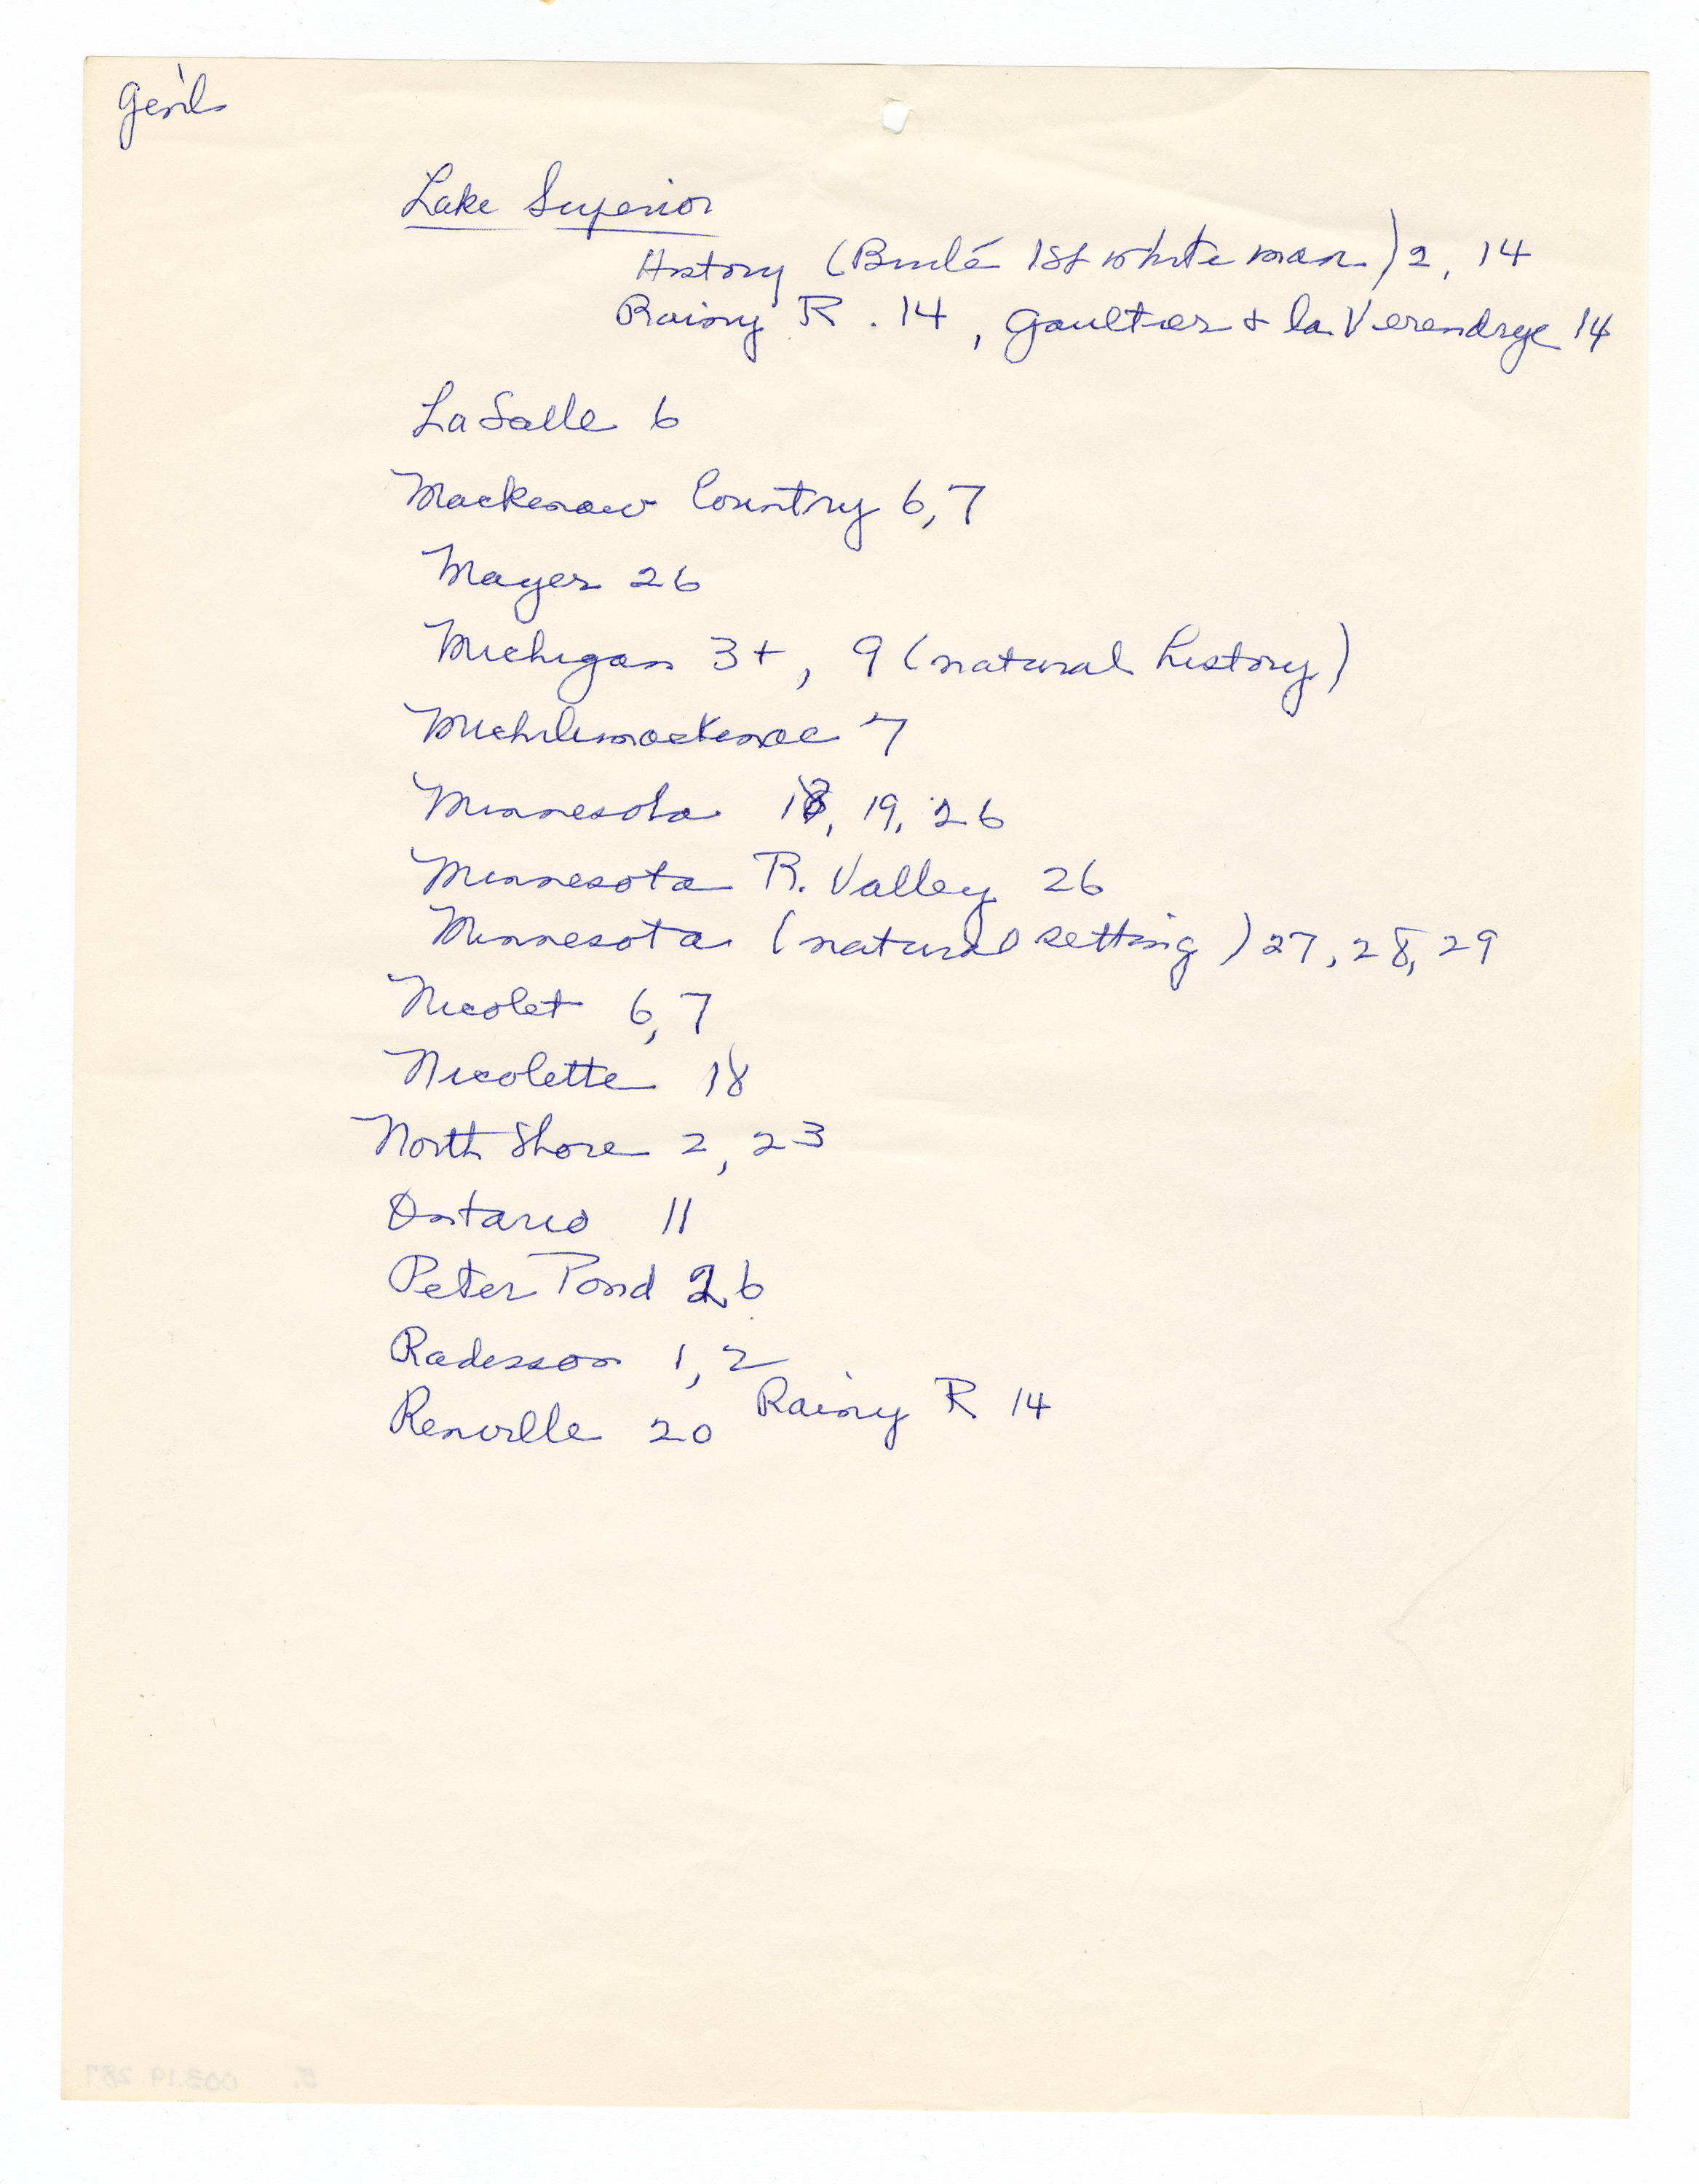 Gen'l
Lake Superior
History (Brulé 1st white man) 2, 14
Rainy R. 14, Gaultier & la Verendrye 14
LaSalle 6
Mackenaw Country 6, 7
Mayer 26
Michigan 3+, 9 (natural history)
Michilimackenac 7
Minnesota 18, 19, 26
Minnesota R. Valley 26
Minnesota (natural setting) 27, 28, 29
Nicolet 6, 7
Nicolette 18
North Shore 2, 23
Ontario 11
Peter Pond 26
Radisson 1, 2
Rainy R. 14
Renville 20
003.19.287 5.